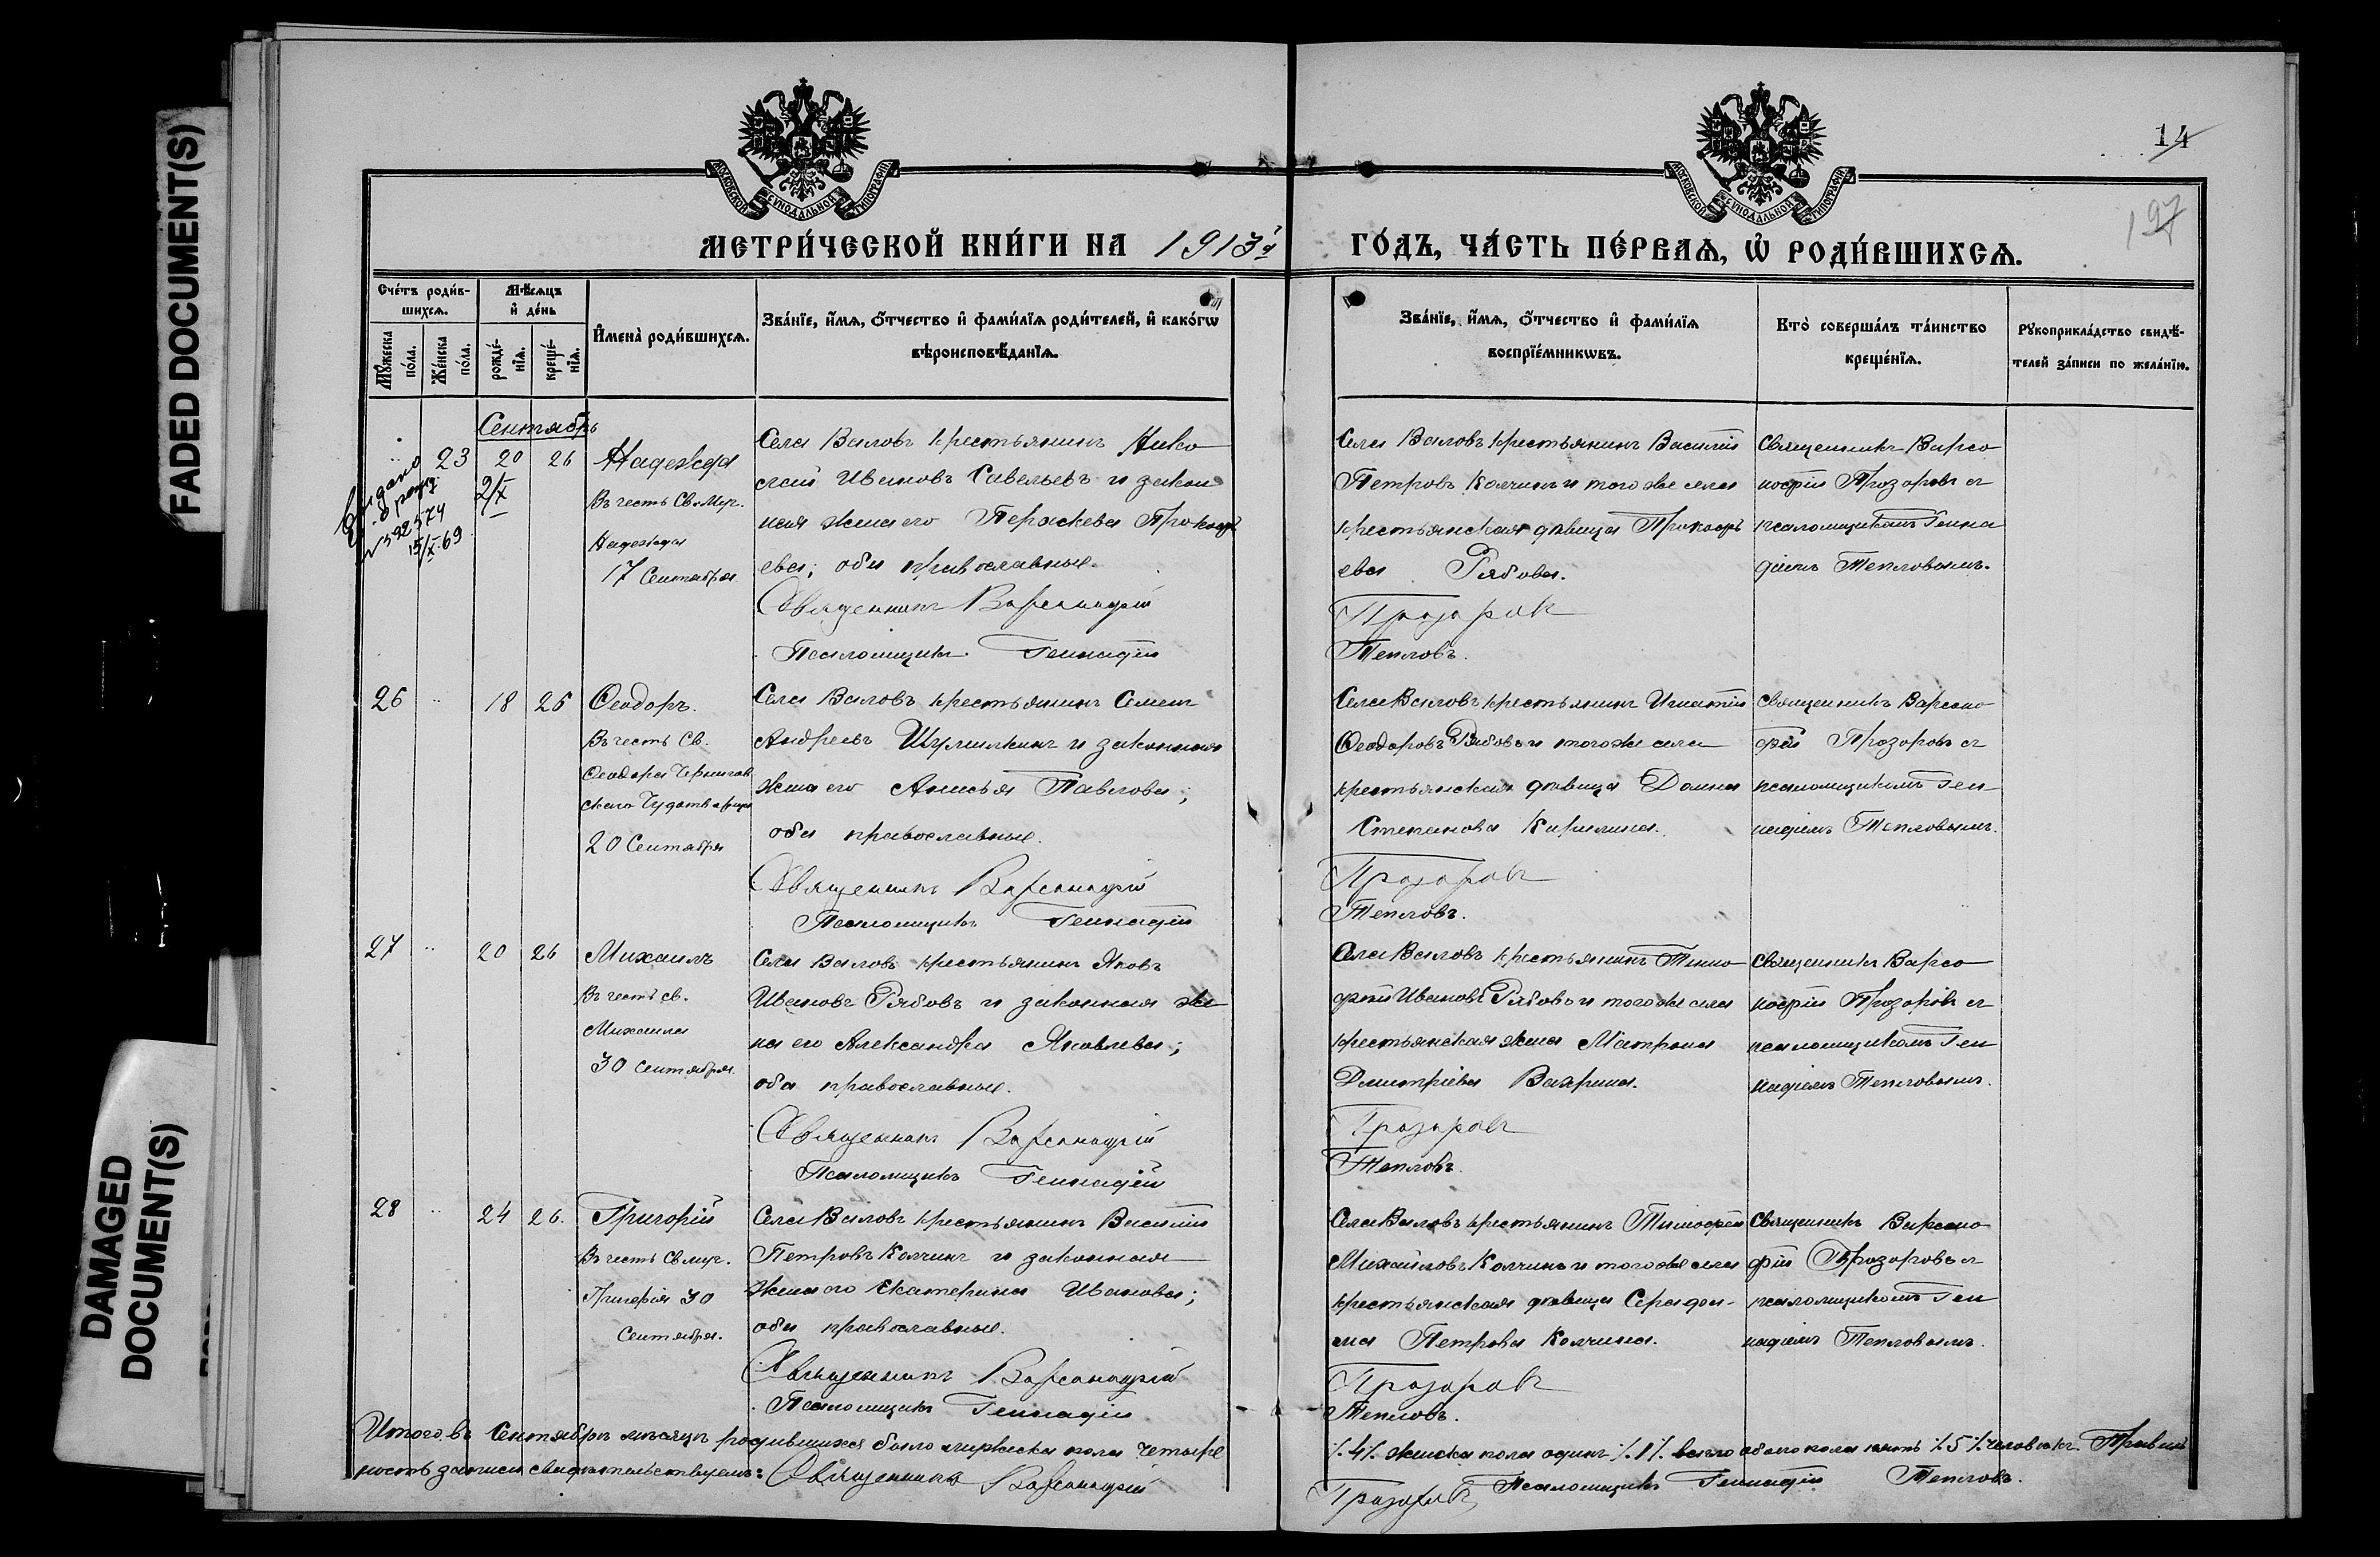 FADED DOCUMENT(S)
DAMAGED
DOCUMENT(S)
МОСКОВСКОЙ СУНОДАЛЬНОЙ ТИПОГРАФІИ
МОСКОВСКОЙ СУНОДАЛЬНОЙ ТИПОГРАФІИ
14
197
МЕТРИ́ЧЕСКОЙ КНИ́ГИ НА 1913й
ГО́ДЪ, ЧА́СТЬ ПЕ́РВАѦ, Ѡ РОДИ́ВШИХСѦ.
Сче́тъ роди́в-
шихсѧ.
Мѣ́сѧцъ
и҆ де́нь
Мꙋжеска по́ла.
Же́нска по́ла.
рожде́-
нїѧ.
креще́-
нїѧ.
И҆мена̀ роди́вшихсѧ.
Зва́нїе, и҆́мѧ, ѻ҆́тчество и҆ фами́лїѧ роди́телей, и҆ како́гѡ
вѣроисповѣ́данїѧ.
Зва́нїе, и҆́мѧ, ѻ҆́тчество и҆ фами́лїѧ
воспрїе́мникѡвъ.
Кто̀ соверша́лъ та́инство
креще́нїѧ.
Рꙋкоприкла́дство свидѣ́-
телей за́писи по жела́нїю.
Сентябрь
23 20 26 Надежда
2/X
Выдано
о рожд.
15/X.69
Въ честь Св. Муч.
Надежды
17 Сентября.
Села Валовъ крестьянинъ Нико
лай Ивановъ Савельевъ и закон
ная жена его Параскева Прокофь
ева; оба православные.
Священникъ Варсонофій
Псаломщикъ Геннадій
Села Валовъ крестьянинъ Василій
Петровъ Колчинъ и того же села
крестьянская дѣвица Прокофь
ева Рябова.
Прозоровъ
Тепловъ.
Священникъ Варсо
нофій Прозоровъ съ
псаломщикомъ Генна
діемъ Тепловымъ.
26 " 18 26 Ѳеодоръ.
Въ честь Св.
Ѳеодора Чернигов
скаго Чудотворца
20 Сентября
Села Валовъ крестьянинъ Семенъ
Андреевъ Шумилкинъ и законная
жена его Анисья Павлова;
оба православные.
Священникъ Варсонофій
Псаломщикъ Геннадій
Села Валовъ крестьянинъ Игнатій
Ѳеодоровъ Рябовъ и того же села
крестьянская дѣвица Домна
Степанова Кирилина.
Прозоровъ
Тепловъ.
Священникъ Варсоно
фій Прозоровъ съ
псаломщикомъ Ген
надіемъ Тепловымъ.
27 " 20 26 Михаилъ
Въ честь св.
Михаила
30 Сентября.
Села Валовъ крестьянинъ Яковъ
Ивановъ Рябовъ и законная же
на его Александра Яковлева;
оба православные.
Священникъ Варсонофій
Псаломщикъ Геннадій
Села Валовъ крестьянинъ Тимо
фей Ивановъ Рябовъ и того же села
крестьянская жена Матрона
Дмитріева Вахрина.
Прозоровъ
Тепловъ.
Священникъ Варсо
нофій Прозоровъ съ
псаломщикомъ Ген
надіемъ Тепловымъ.
28 " 24 26. Григорій
Въ честь Св муч.
Григорія 30
Сентября.
Села Валовъ крестьянинъ Василій
Петровъ Колчинъ и законная
жена его Екатерина Иванова;
оба православные.
Священникъ Варсонофій
Псаломщикъ Геннадій
Села Валовъ крестьянинъ Тимофей
Михайловъ Колчинъ и того же села
крестьянская дѣвица
Петрова Колчина.
Прозоровъ
Тепловъ.
Священникъ Варсоно
фій Прозоровъ съ
псаломщикомъ Ген
надіемъ Тепловымъ.
Итого въ Сентябрѣ мѣсяцѣ родившихся было мужеска пола четыре
/.4/. женска пола одинъ /.1/. всего обоего пола пять /.5/. человѣкъ. Правиль
ность записи свидѣтельствуемъ: Священникъ Варсонофій
Прозоровъ Псаломщикъ Геннадій Тепловъ.